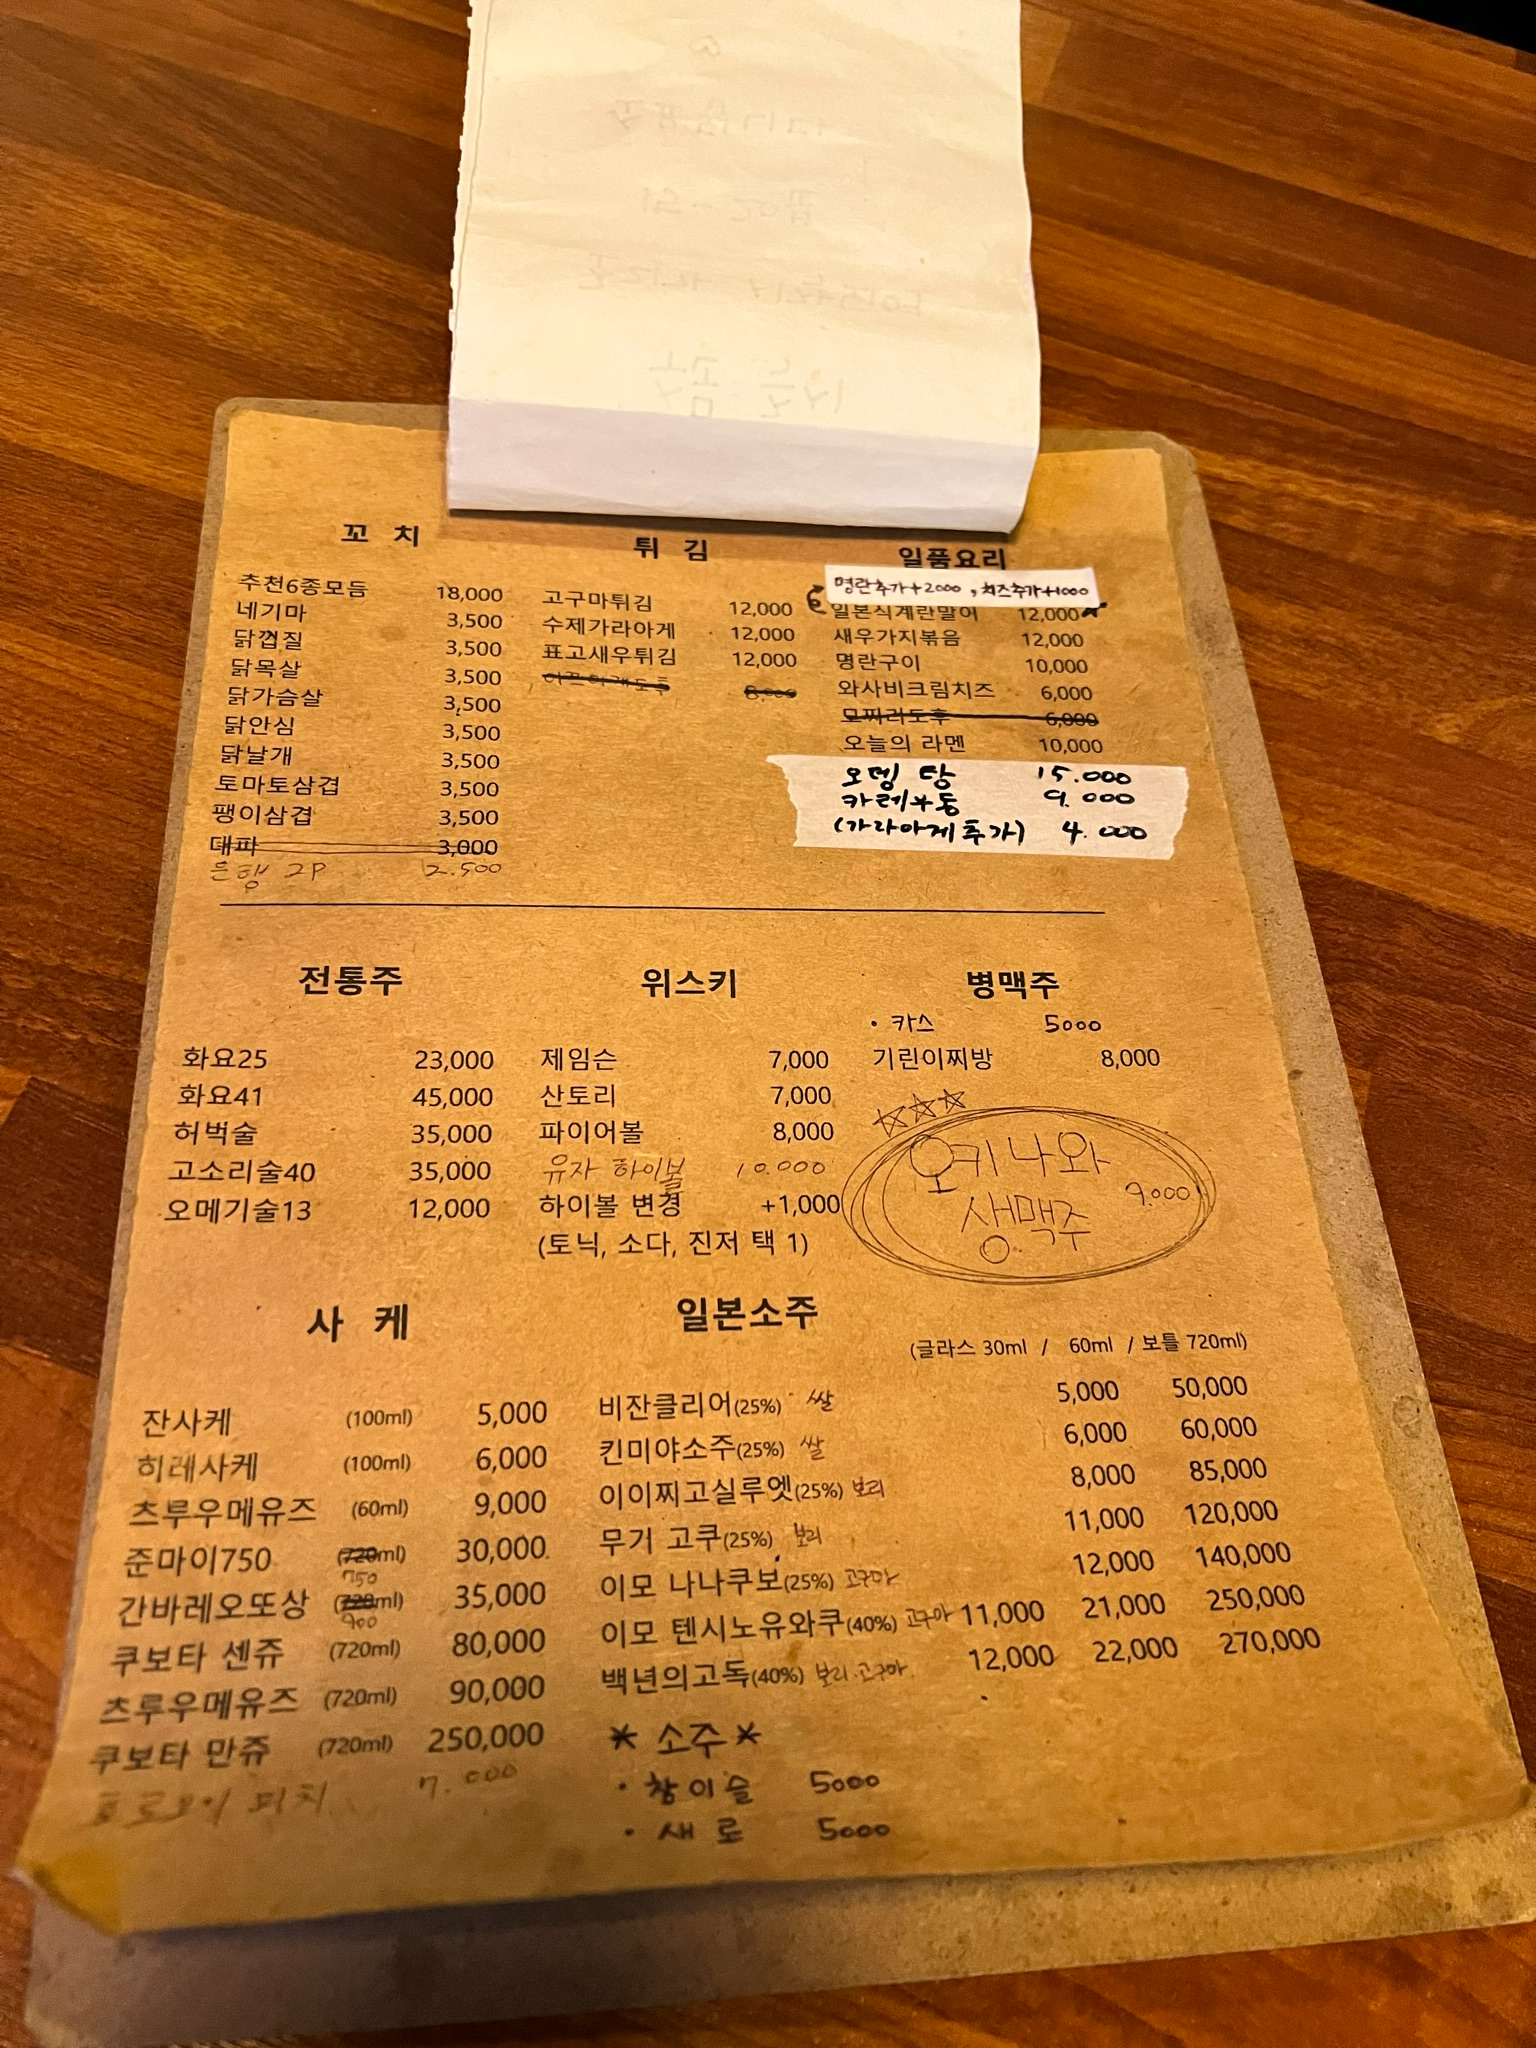 꼬 치
추천6종모듬 18,000
네기마 3,500
닭껍질 3,500
닭목살 3,500
닭가슴살 3,500
닭안심 3,500
닭날개 3,500
토마토삼겹 3,500
팽이삼겹 3,500
대파 3,000
은행 2P 2.500
튀 김
고구마튀김 12,000
수제가라아게 12,000
표고새우튀김 12,000
8,000
일품요리
명란추가+2000, 치즈추가+1000
일본식계란말이 12,000
새우가지볶음 12,000
명란구이 10,000
와사비크림치즈 6,000
모찌리도후 6,000
오늘의 라멘 10,000
오뎅 탕 15.000
카레우동 9.000
(가라아게추가) 4.000
전통주
화요25 23,000
화요41 45,000
허벅술 35,000
고소리술40 35,000
오메기술13 12,000
위스키
제임슨 7,000
산토리 7,000
파이어볼 8,000
유자 하이볼 10.000
하이볼 변경 +1,000
(토닉, 소다, 진저 택 1)
병맥주
• 카스 5000
기린이찌방 8,000
오키나와
생맥주 9.000
사 케
잔사케 (100ml) 5,000
히레사케 (100ml) 6,000
츠루우메유즈 (60ml) 9,000
준마이750 (720ml) 30,000
750
간바레오또상 (720ml) 35,000
900
쿠보타 센쥬 (720ml) 80,000
츠루우메유즈 (720ml) 90,000
쿠보타 만쥬 (720ml) 250,000
피치 7.000
일본소주
(글라스 30ml / 60ml / 보틀 720ml)
비잔클리어(25%) 쌀 5,000 50,000
킨미야소주(25%) 쌀 6,000 60,000
이이찌고실루엣(25%) 보리 8,000 85,000
무기 고쿠(25%) 보리 11,000 120,000
이모 나나쿠보(25%) 고구마 12,000 140,000
이모 텐시노유와쿠(40%) 고구마 11,000 21,000 250,000
백년의고독(40%) 보리.고구마 12,000 22,000 270,000
* 소주 *
• 참이슬 5000
• 새로 5000